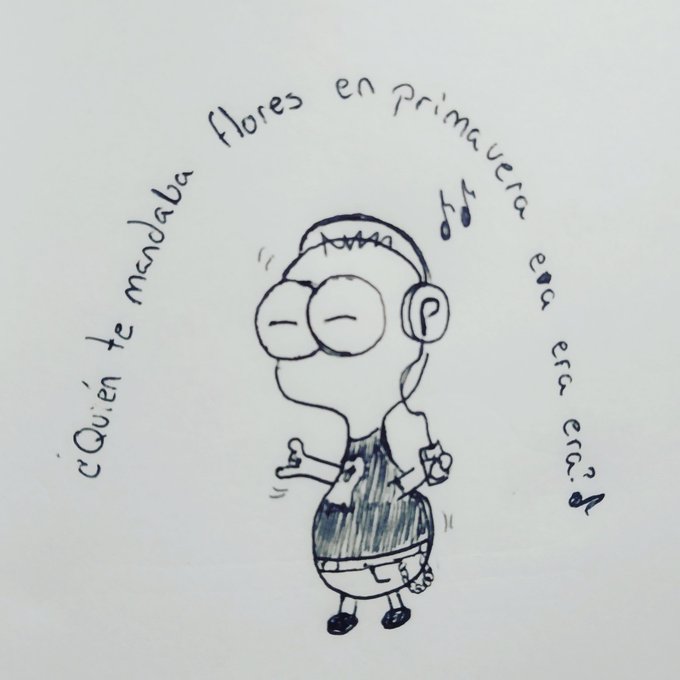 ¿Quién te mandaba flores en primavera era era era?
P